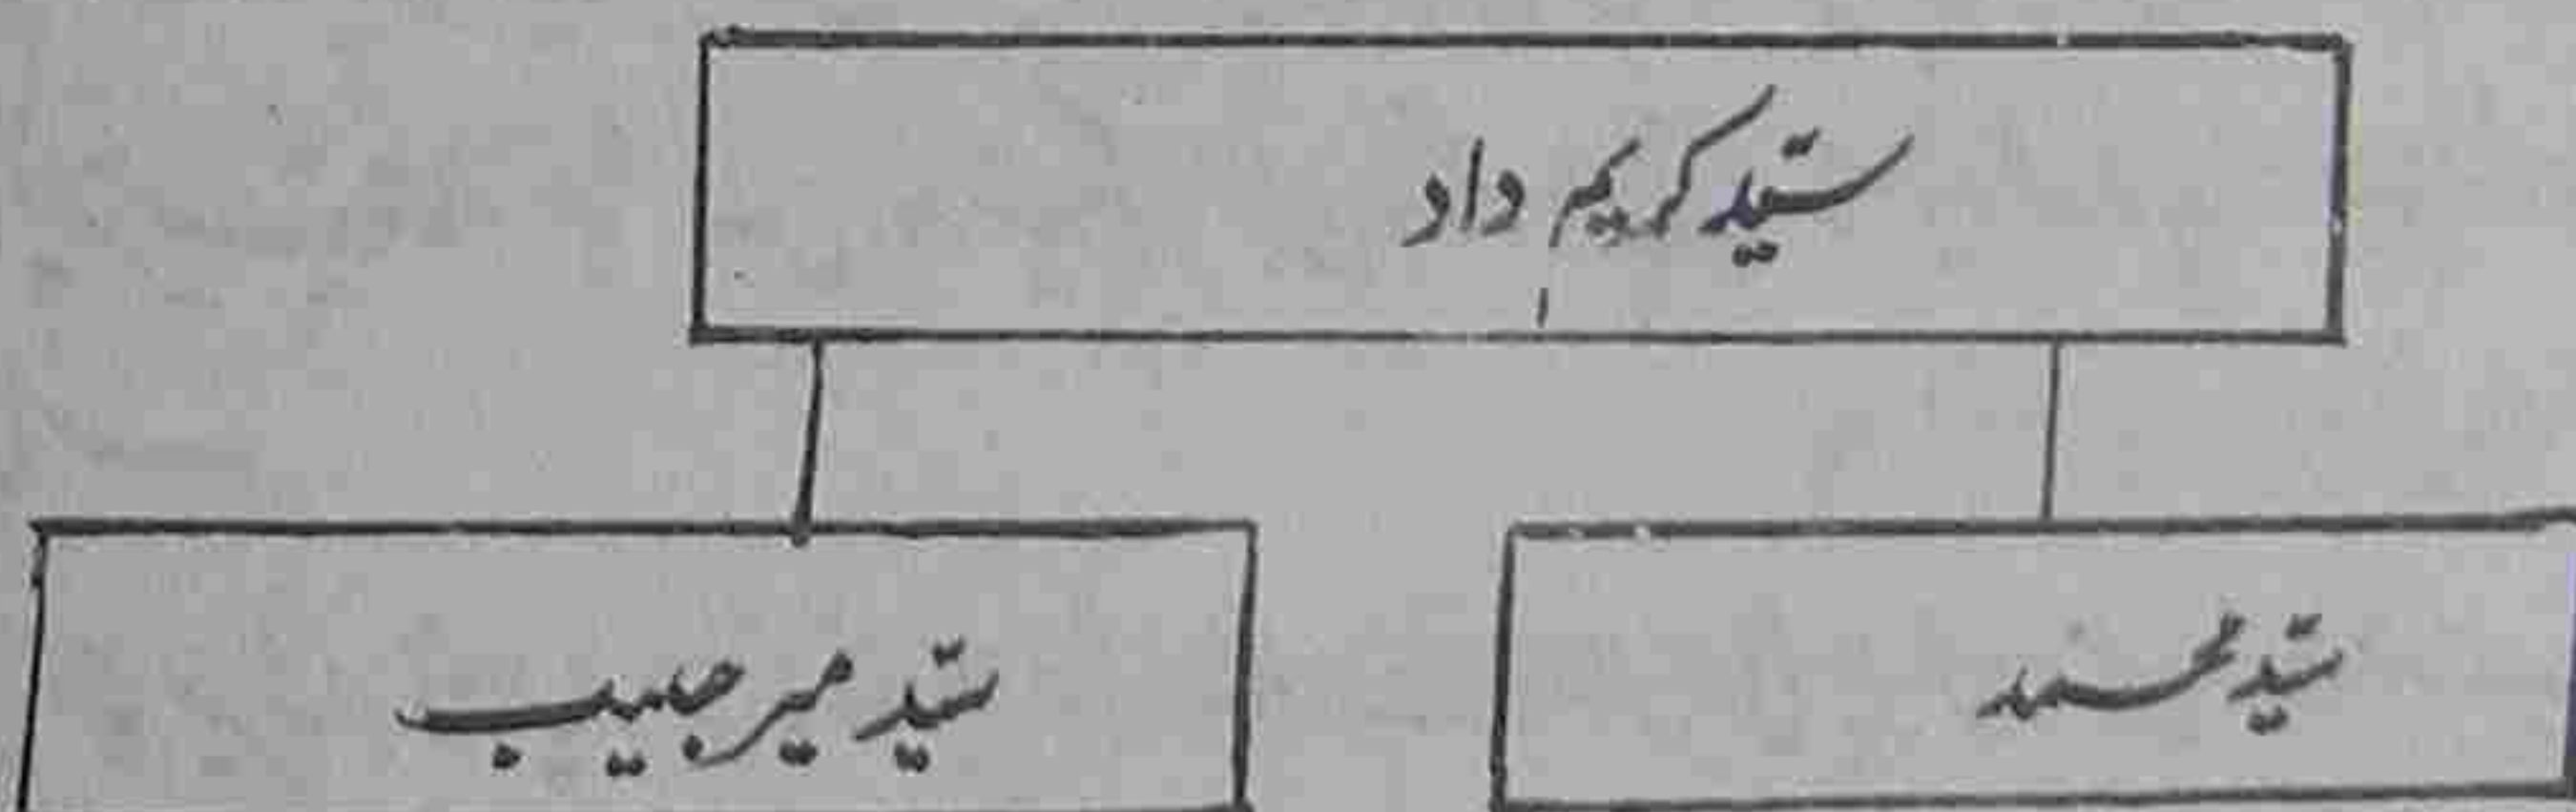 سیّد کریم داد
سیّد محمد
سیّد میر حبیب